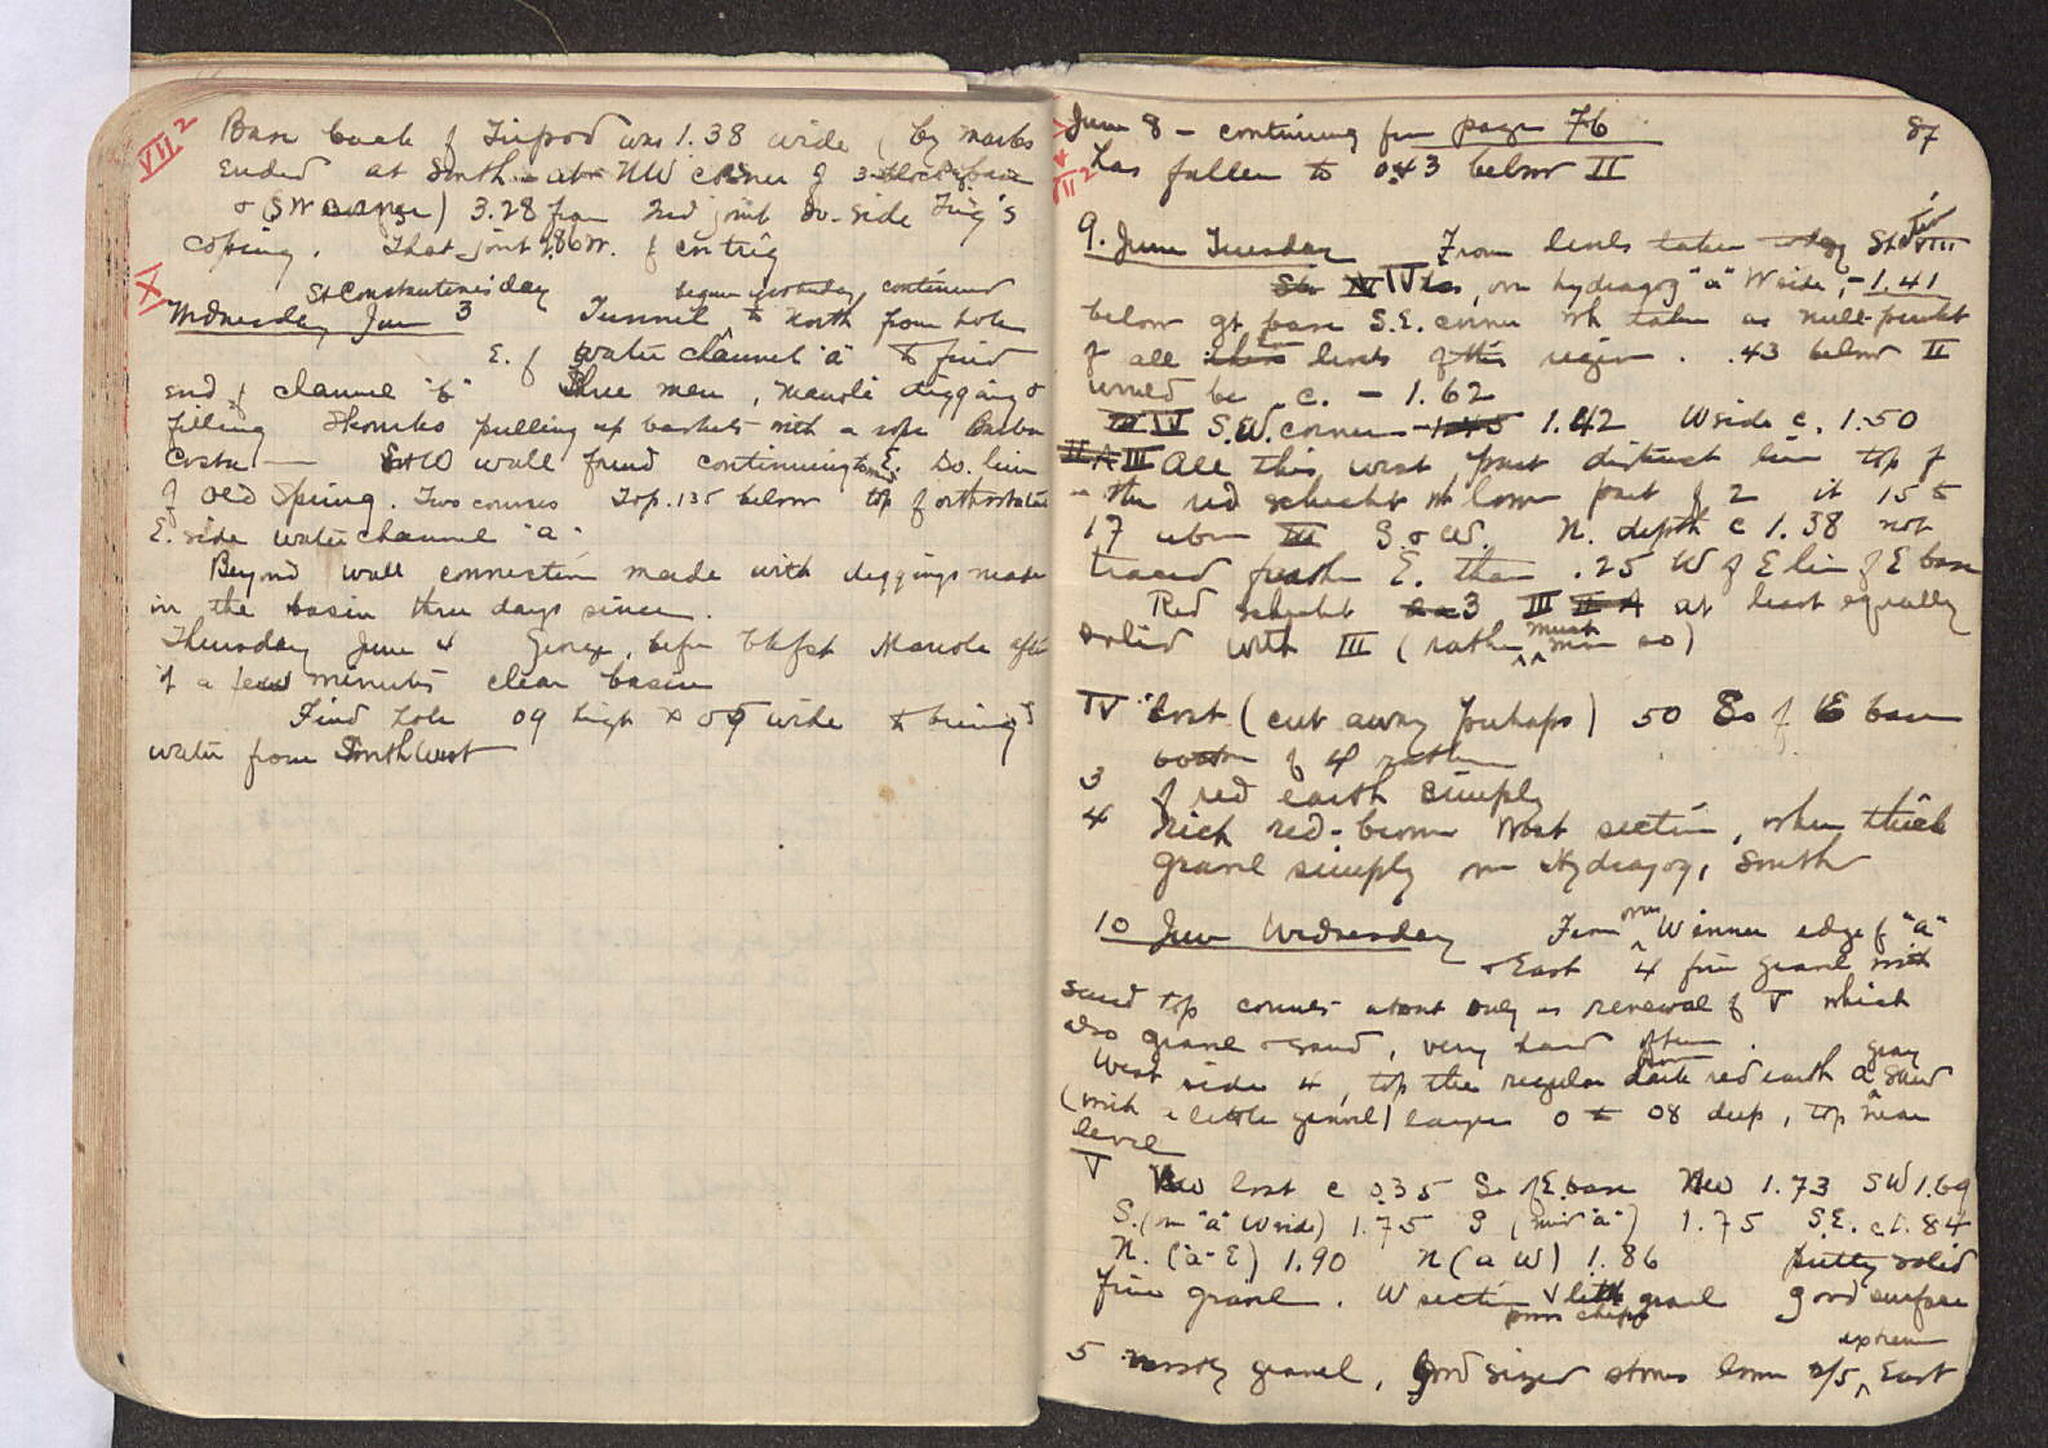 VII 2
Base back of Tripod was 1.38 wide (by marks
ended at South - NW corner of 3 block base
+ (SW corner) 3.28 from 2nd joint So. side Trig's
coping. That joint .86 W. of cntrig
X
St Constantine's day begun yesterday, continued
Wednesday June 3 Tunnel to North from hole
E. of water channel "a" to find
end of channel "b" Three men, Manoli digging +
filling Skourles pulling up baskets with a rope Barba
Costa — wall found continuing toward E. So. line
of Old Spring. Two courses Top .135 below top of orthostates
E. side water channel "a"
Beyond wall connection made with diggings made
in the basin three days since.
Thursday June 4 George, before bkfst Manole after
if a few minutes clear basin
Find hole 09 high x 09 wide to bring
water from South West
June 8 - continuing from page 76 87
has fallen to 0.43 below II
VII 2
9. June Tuesday From levels taken today St
IV, over hydragog "a" W side, - 1.41
below gt base S.E. corner wh taken as null-punkt
of all levels of this region. .43 below II
would be c. - 1.62
IV S.W. corner 1.42 W side c. 1.50
III All this west part distinct line top of
the red schicht wh lower part of 2 it 15 to
17 above III S. + W. N. depth c 1.38 not
traced further E. than .25 W of E line of E base
Red schicht 3 III at least equally
solid with III (rather much more so)
IV lost (cut away perhaps) 50 So of E base
bottom of 4 rather
3 of red earth simply
4 Rich red-brown West section, when thick
gravel simply over Hydragog, South
10 June Wednesday From over W inner edge of "a"
+ East 4 fine gravel with
sand top counts about only as renewal of V which
also gravel + sand, very hard often.
West side 4, top the regular dark brown red earth a gray sand
(with a little gravel) layer 0 to 08 deep, top near
level
V lost c 0.35 So of E base NW 1.73 SW 1.69
S. (on "a" W side) 1.75 S (mid "a") 1.75 S.E. c 1.84
N. ("a" E) 1.90 N (a W) 1.86 pretty solid
fine gravel. W section little gravel good surface
poros chips
5 mostly gravel, good sized stones lower 2/5, extreme East